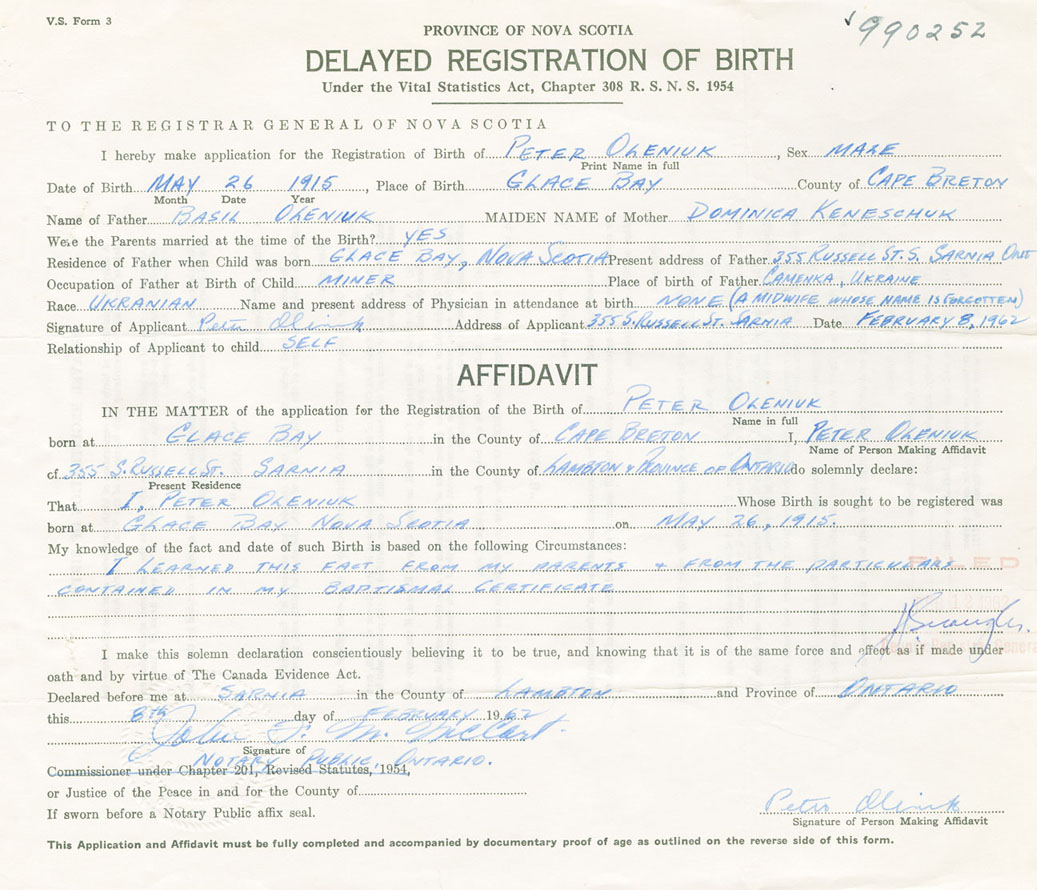 V.S. Form 3
990252
PROVINCE OF NOVA SCOTIA
DELAYED REGISTRATION OF BIRTH
Under the Vital Statistics Act, Chapter 308 R. S. N. S. 1954
TO THE REGISTRAR GENERAL OF NOVA SCOTIA
I hereby make application for the Registration of Birth of PETER OLENIUK, Sex MALE
Print Name in full
Date of Birth MAY 26 1915, Place of Birth GLACE BAY County of CAPE BRETON
Month Date Year
Name of Father BASIL OLENIUK MAIDEN NAME of Mother DOMINICA KENESCHUK
Were the Parents married at the time of the Birth? YES
Residence of Father when Child was born GLACE BAY, NOVA SCOTIA Present address of Father 355 RUSSELL ST. S. SARNIA Ont
Occupation of Father at Birth of Child MINER Place of birth of Father CAMENKA, UKRAINE
Race UKRANIAN Name and present address of Physician in attendance at birth NONE (A MIDWIFE WHOSE NAME IS FORGOTTEN)
Signature of Applicant Peter Olinik Address of Applicant 355 S. RUSSELL ST. SARNIA Date FEBRUARY 8, 1962
Relationship of Applicant to child SELF
AFFIDAVIT
IN THE MATTER of the application for the Registration of the Birth of PETER OLENIUK
Name in full
born at GLACE BAY in the County of CAPE BRETON I, PETER OLENIUK
Name of Person Making Affidavit
of 355 S. RUSSELL ST. SARNIA in the County of LAMBTON & PROVINCE OF ONTARIO do solemnly declare:
Present Residence
That I, PETER OLENIUK Whose Birth is sought to be registered was
born at GLACE BAY NOVA SCOTIA on MAY 26, 1915.
My knowledge of the fact and date of such Birth is based on the following Circumstances:
I LEARNED THIS FACT FROM MY PARENTS & FROM THE PARTICULARS
FILED
CONTAINED IN MY BAPTISMAL CERTIFICATE
I make this solemn declaration conscientiously believing it to be true, and knowing that it is of the same force and effect as if made under
oath and by virtue of The Canada Evidence Act.
Declared before me at SARNIA in the County of LAMBTON and Province of ONTARIO
this 8th day of FEBRUARY 1962
John McCart
Signature of
NOTARY PUBLIC, ONTARIO.
Commissioner under Chapter 201, Revised Statutes, 1954,
or Justice of the Peace in and for the County of
If sworn before a Notary Public affix seal.
Peter Olinik
Signature of Person Making Affidavit
This Application and Affidavit must be fully completed and accompanied by documentary proof of age as outlined on the reverse side of this form.